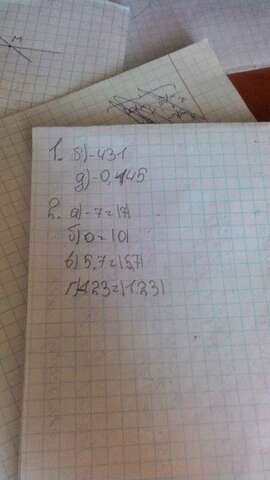 M
1. б) -431
д) -0,145
2. а) -7=|7|
б) 0=|0|
в) 5,7=|5,7|
г) 123=|123|